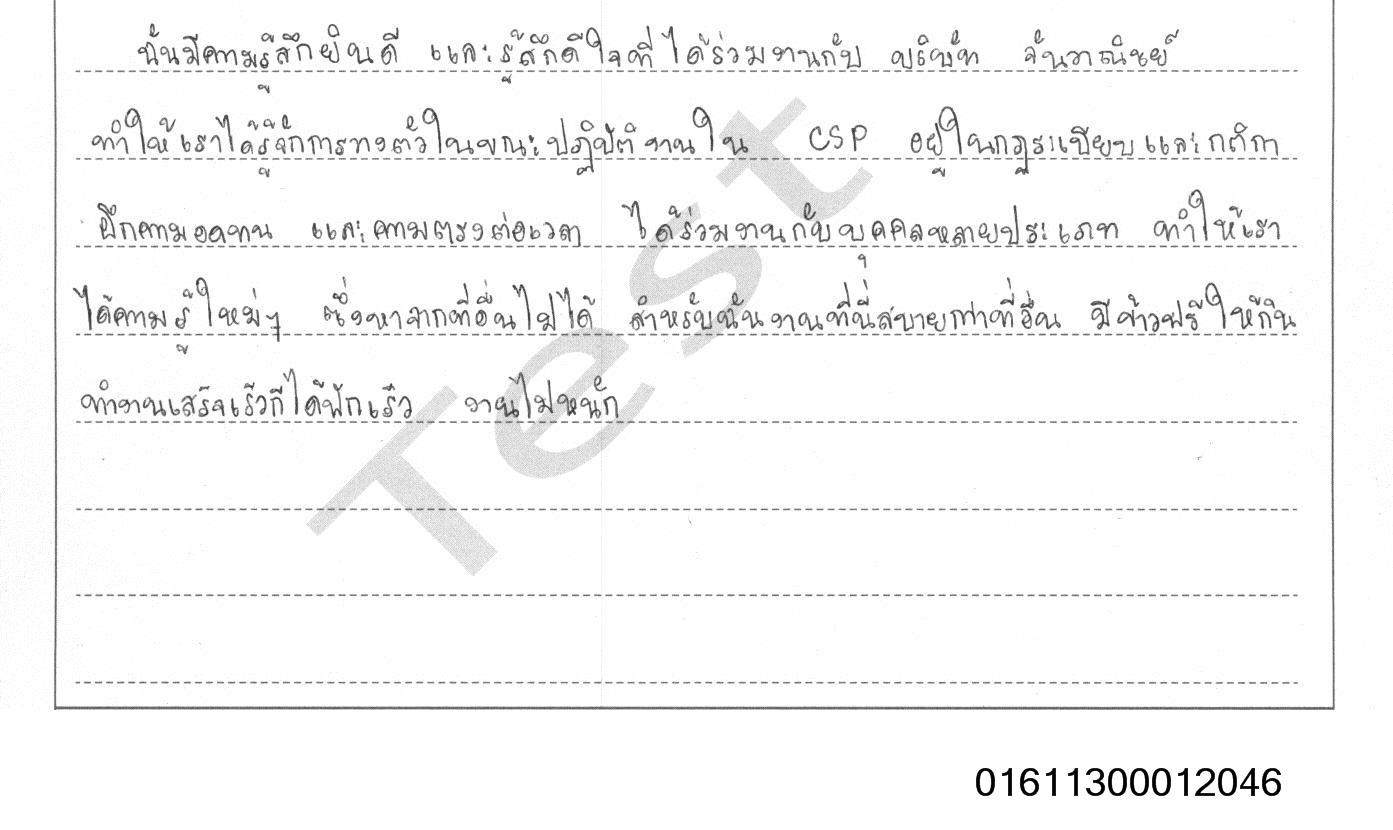 ฉันมีความรู้สึกยินดี และรู้สึกดีใจที่ได้ร่วมงานกับ บริษัท จันวาณิชย์
ทำให้เราได้รู้จักการวางตัวในขณะปฏิบัติงานใน CSP อยู่ในกฎระเบียบและกติกา
ฝึกความอดทน และความตรงต่อเวลา ได้ร่วมงานกับบุคคลหลายประเภท ทำให้เรา
ได้ความรู้ใหม่ๆ ซึ่งหาจากที่อื่นไม่ได้ สำหรับฉันงานที่นี่สบายกว่าที่อื่น มีข้าวฟรีให้กิน
ทำงานเสร็จเร็วก็ได้พักเร็ว งานไม่หนัก
Test
01611300012046